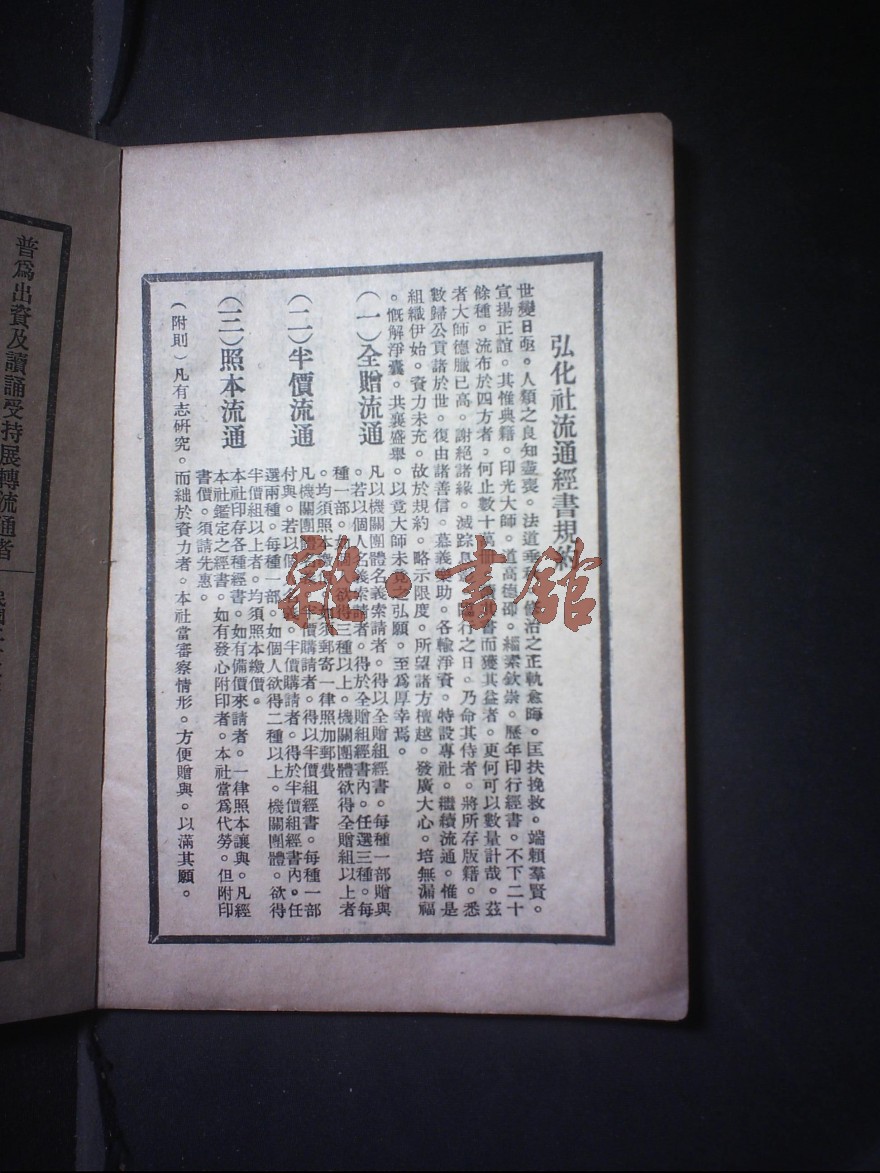 弘化社流通經書規約
世變日亟。人類之良知盡喪。法道垂秋。修治之正軌愈晦。匡扶挽救。端賴羣賢。
宣揚正誼。其惟典籍。印光大師。道高德卲。緇素欽崇。歷年印行經書。不下二十
餘種。流布於四方者。何止數十萬冊。讀其書而獲其益者。更何可以數量計哉。茲
者大師德臘已高。謝絕諸緣。滅踪 隨行之日。乃命其侍者。將所存版籍。悉
數歸公貢諸於世。復由諸善信。慕義樂助。各輸淨資。特設專社。繼續流通。惟是
組織伊始。資力未充。故於規約。略示限度。所望諸方檀越。發廣大心。培無漏福
。慨解淨囊。共襄盛舉。以竟大師未竟之弘願。至爲厚幸焉。
(一)全贈流通
凡以機關團體名義索請者。得以全贈組經書。每種一部贈與
。若以個人名義索請者。得於全贈組經書內。任選三種。每
種一部。如個人欲得三種以上。機關團體欲得全贈組以上者
。均須照本繳價。如須郵寄一律照加郵費
(二)半價流通
凡機關團體名義。半價購請者。得以半價組經書。每種一部
付與。若以個人名義。半價購請者。得於半價組經書內。任
選兩種。每種一部。如個人欲得二種以上。機關團體。欲得
半價組以上者。均須照本繳價。
(三)照本流通
本社印存各種經書。如有備價來請者。一律照本讓與。凡經
本社鑑定之經書。如有發心附印者。本社當爲代勞。但附印
書價。須請先惠。
(附則)凡有志研究。而絀於資力者。本社當審察情形。方便贈與。以滿其願。
普爲出資及讀誦受持展轉流通者
民國二十
雜·書館